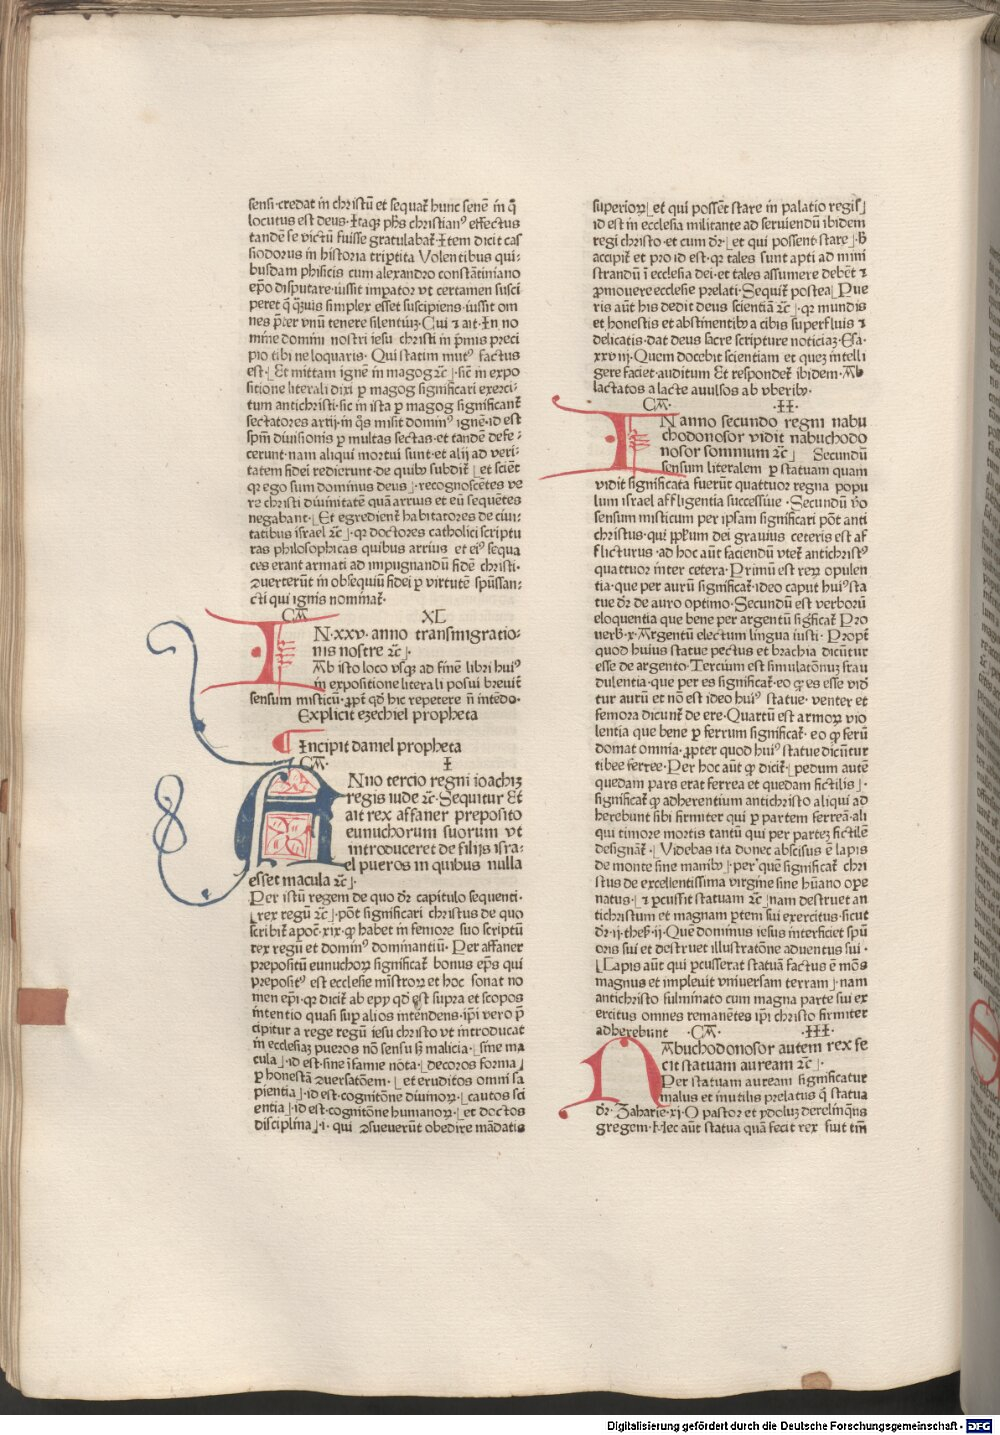 sensi·credat in christū et sequat᷑ hunc senē in q̄
locutus est deus·Itaqꝫ ph̄s christianꝰ effectus
tandē se victū fuisse gratulabat᷑·Item dicit cas
siodorus in historia triptita Volentibus qui⸗
busdam phisicis cum alexandro constātiniano
ep̄o disputare·iussit impator vt certamen susci
peret q̄ q̄ꝫuis simplex esset suscipiens·iussit om
nes p̄ter vnū tenere silentiūꝫ·Cui ⁊ ait·In no
mine domini nostri iesu christi in p̄mis preci
pio tibi ne loquaris· Qui statim mutꝰ factus
est·⌊Et mittam ignē in magog ⁊c̄⌋·sic̄ in expo
sitione literali dixi p magog significari exerci⸗
tum antichristi·sic in ista p magog significant᷑
sectatores arrij·in q̄s misit dominꝰ ignē·id est
sp̄m diuisionis p multas sectas·et tandē defe⸗
cerunt·nam aliqui mortui sunt·et alij ad veri⸗
tatem fidei redierunt·de quibꝰ subdit᷑⌊et sciēt
qꝛ ego sum dominus deus⌋·recognoscētes ve
re christi diuinitatē quā arrius et eū sequētes
negabant·⌊Et egredient᷑ habitatores de ciui⸗
tatibus israel ⁊c̄⌋·qꝛ doctores catholici scriptu
ras philosophicas quibus arrius et eiꝰ sequa
ces erant armati ad impugnandū fidē christi·
ꝯuerterūt in obsequiū fidei p virtutē spūssan⸗
cti qui ignis nominat᷑·
Ca̅· XL
IN·xxv·anno transmigratio⸗
nis nostre ⁊c̄⌋·
Ab isto loco vsqꝫ ad finē libri huiꝰ
in expositione literali posui breuit᷑
sensum misticū·ꝓpt᷑ qd̄ hic repetere n̄ intēdo·
Explicit ezechiel propheta
Incipit daniel propheta
Ca̅· I
ANno tercio regni ioachiꝫ
regis iude ⁊c̄·Sequitur Et
ait rex affaner preposito
eunuchorum suorum vt
introduceret de filijs isra⸗
el pueros in quibus nulla
esset macula ⁊c̄⌋·
Per istū regem de quo dr̄ capitulo sequenti·
⌊rex regū ⁊c̄⌋·pōt significari christus de quo
scribit᷑ apoc̄·xix·ꝙ habet in femore suo scriptū
rex regū et dominꝰ dominantiū· Per affaner
prepositū eunuchoꝝ significat᷑ bonus ep̄s qui
prepositꝰ est ecclesie mīstroꝝ et hoc sonat no
men ep̄i·qꝛ dicit᷑ ab epy qd̄ est supra et scopos
intentio quasi sup alios intendens·ip̄i vero p̄
cipitur a rege regū iesu christo vt introducat
in ecclesiaꝫ pueros nō sensu sꝫ malicia·⌊sine ma
cula⌋·id est·sine īfamie nota·⌊decoros forma⌋
p honestā ꝯuersatōem·⌊et eruditos omni sa
pientia⌋·id est·cognitōne diuinoꝝ·⌊cautos sci
entia⌋·id est·cognitōne humanoꝝ·⌊et doctos
disciplina⌋·i· qui ꝯsueuerūt obedire mādatis
superioꝝ⌊et qui possēt stare in palatio regis⌋
id est in ecclesia militante ad seruiendū ibidem
regi christo·et cum dr̄·⌊et qui possent stare⌋·ꝟ
accipit᷑ et pro id est·qꝛ tales sunt apti ad mini
strandū ī ecclesia dei·et tales assumere debēt ⁊
ꝓmouere ecclesie prelati·Sequit᷑ postea⌊Pue
ris aūt his dedit deus scientiā ⁊c̄⌋·qꝛ mundis
et honestis et abstinentibꝰ a cibis superfluis ⁊
delicatis·dat deus sacre scripture noticiaꝫ·Esa·
xxviij·Quem docebit scientiam et queꝫ intelli
gere faciet auditum Et respondet᷑ ibidem·Ab
lactatos a lacte auulsos ab vberibꝰ·
Ca̅· ·II·
IN anno secundo regni nabu
chodonosor vidit nabuchodo
nosor somnium ⁊c̄⌋ Secundū
sensum literalem p statuam quam
vidit significata fuerūt quattuor regna popu
lum israel affligentia successiue·Secundū v̄o
sensum misticum per ipsam significari pōt anti
christus·qui pp̄lum dei grauius ceteris est af
flicturus·ad hoc aūt faciendū vtet᷑ antichristꝰ
quattuor inter cetera·Primū est reꝝ opulen
tia·que per aurū significat᷑·ideo caput huiꝰ sta
tue dr̄ de auro optimo·Secundū est verborū
eloquentia que bene per argentū significat᷑ Pro
uerb̄·x·Argentū electum lingua iusti·Propt᷑
quod huius statue pectus et brachia dicūtur
esse de argento·Tercium est simulatōnuꝫ frau
dulentia·que per es significat᷑·eo ꝙ es esse vid̄
tur aurū et nō est ideo huiꝰ statue·venter et
femora dicunt᷑ de ere·Quartū est armoꝝ vio
lentia que bene p ferrum significat᷑· eo ꝙ ferū
domat omnia·ꝓpter quod huiꝰ statue dicūtur
tibee ferree·Per hoc aūt ꝙ dicit᷑·⌊pedum autē
quedam pars erat ferrea et quedam fictilis⌋·
significat᷑ ꝙ adherentium antichristo aliqui ad
herebunt sibi firmiter qui p partem ferreā·ali
qui timore mortis tantū qui per parteꝫ fictilē
designāt᷑·⌊Videbas ita donec abscisus ē lapis
de monte sine manibꝰ⌋·per que significat᷑ chri
stus de excellentissima virgine sine hūano ope
natus·⌊⁊ pcussit statuam ⁊c̄⌋nam destruet an
tichristum et magnam ptem sui exercitus·sicut
dr̄·ij·thes̄·ij·Que dominus iesus interficiet spū
oris sui et destruet illustratōne aduentus sui·
⌊Lapis aūt qui pcusserat statuā factus ē mōs
magnus et impleuit vniuersam terram⌋·nam
antichristo fulminato cum magna parte sui ex
ercitus omnes remanētes ip̄i christo firmiter
adherebunt ·Ca̅· ·III·
NAbuchodonosor autem rex fe
cit statuam auream ⁊c̄⌋·
Per statuam auream significatur
malus et inutilis prelatus q̄ statua
dr̄·Zaharie·xj·O pastor et ydoluꝫ derelinq̄ns
gregem·Hec aūt statua quā fecit rex fuit tm̄
Digitalisierung gefördert durch die Deutsche Forschungsgemeinschaft - DFG